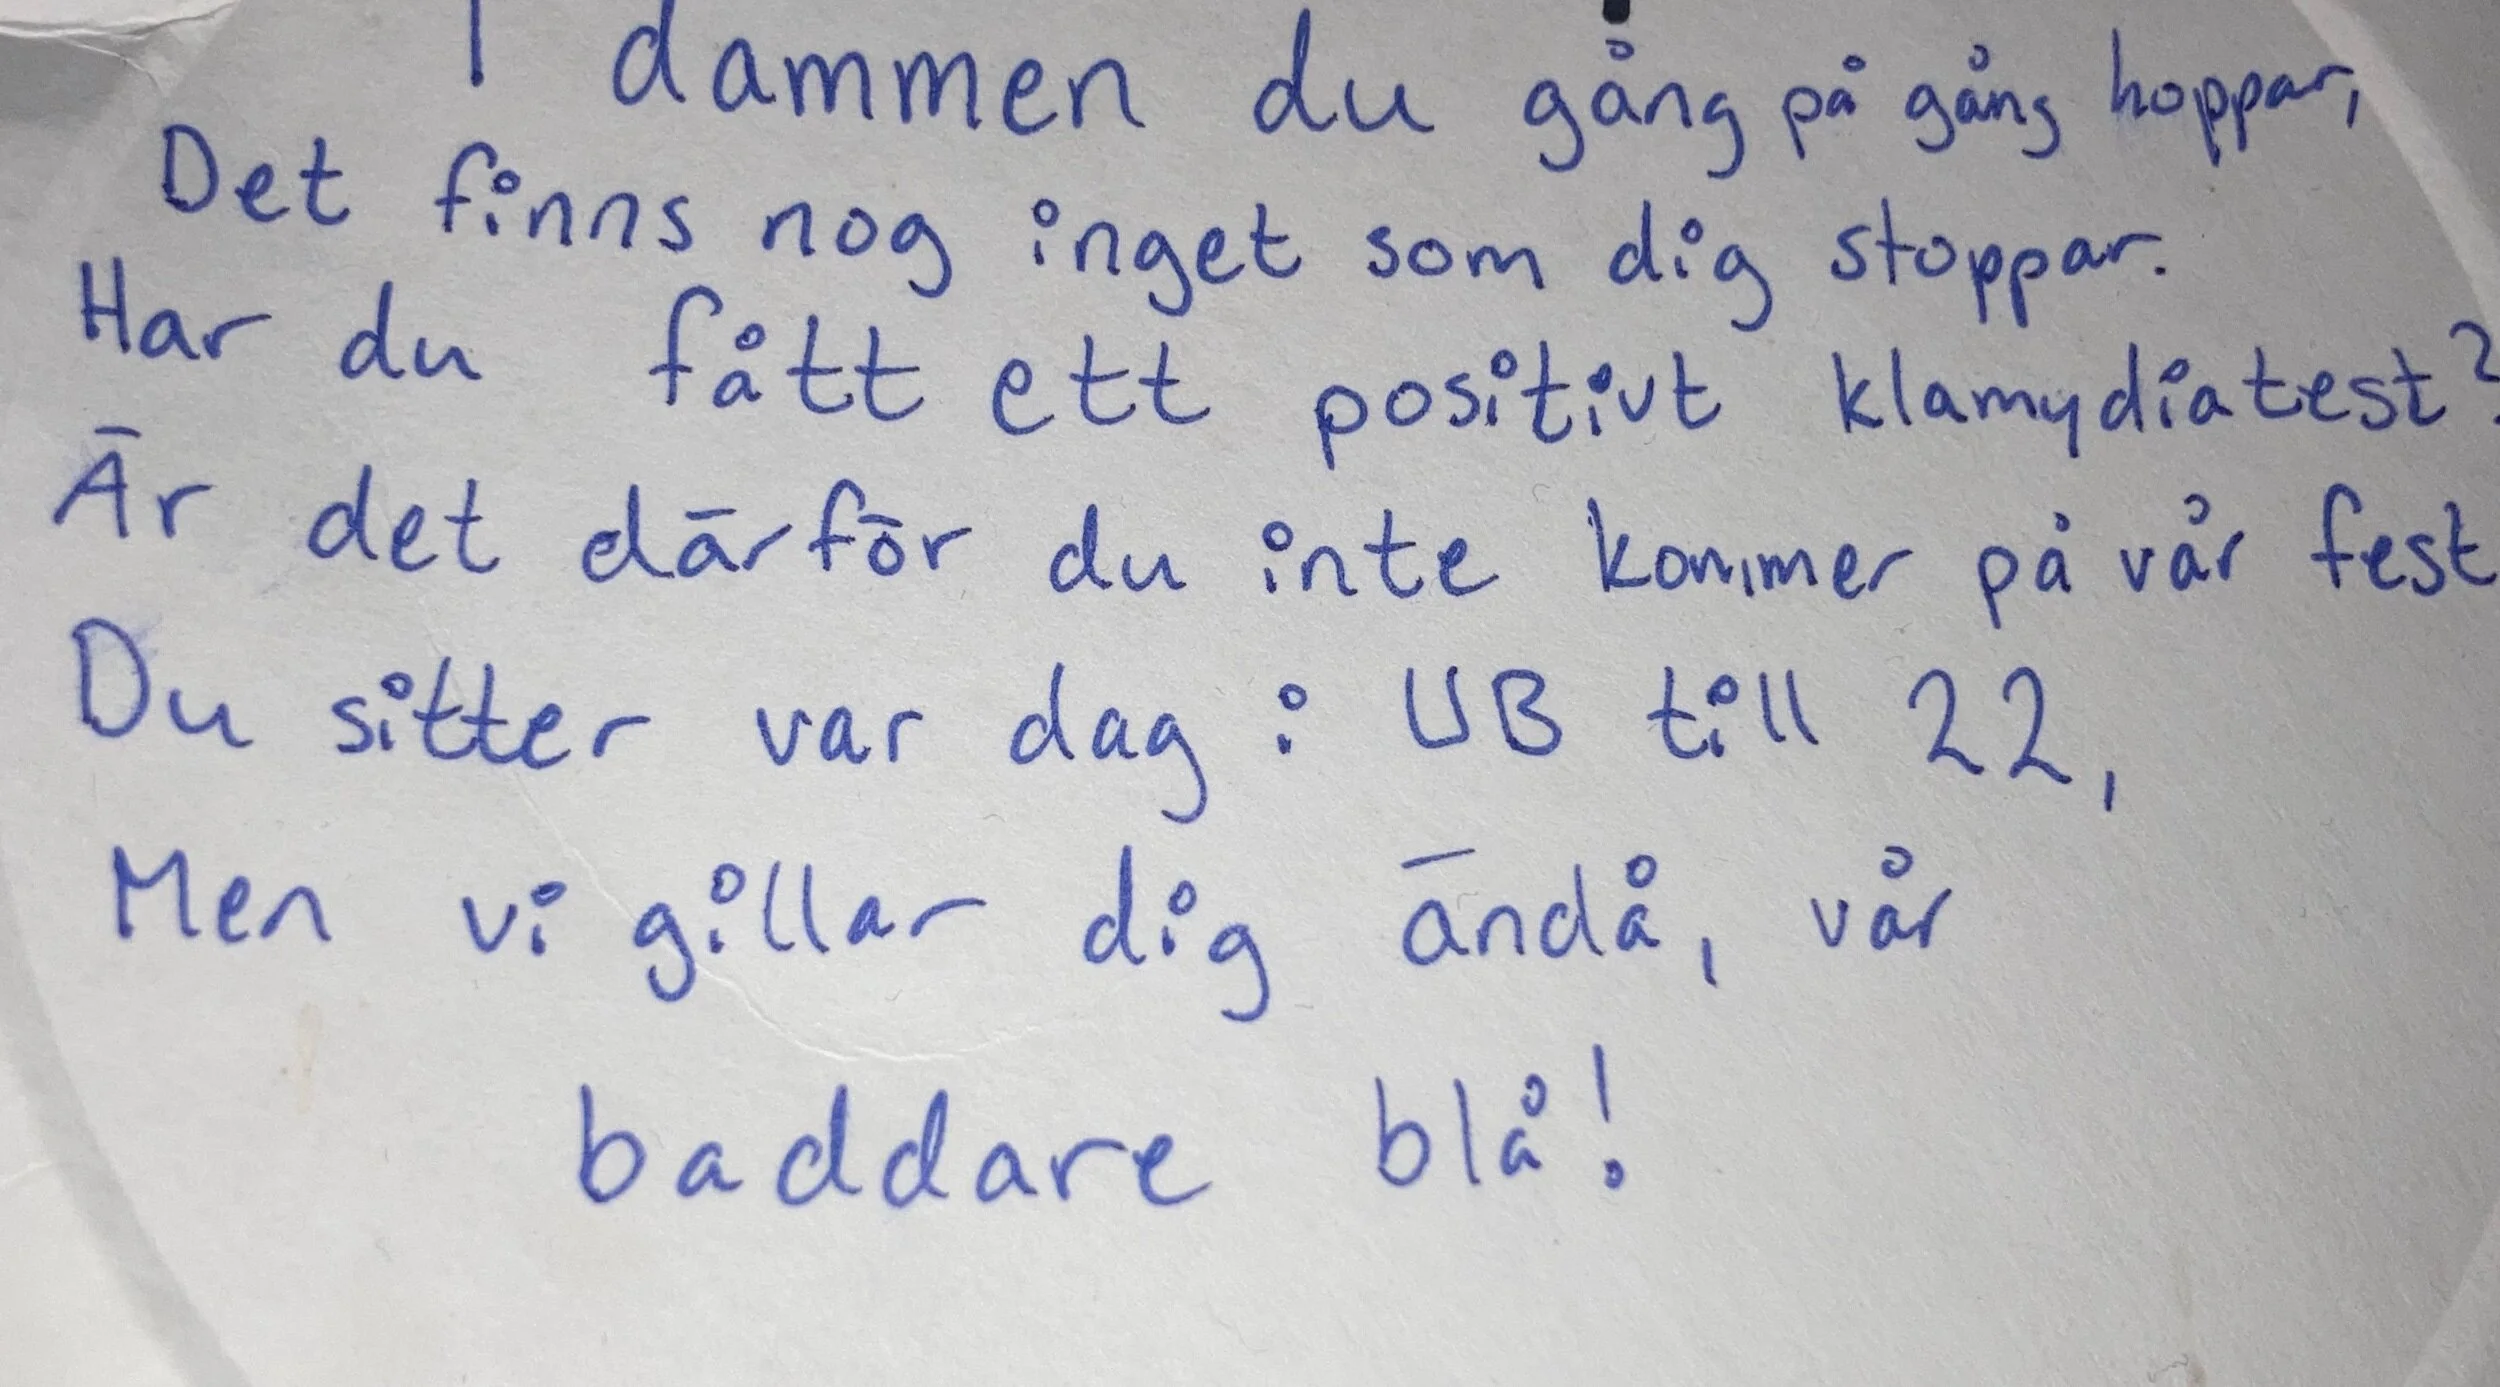 I dammen du gång på gång hoppar,
Det finns nog inget som dig stoppar.
Har du fått ett positivt klamydiatest?
Är det därför du inte kommer på vår fest
Du sitter var dag i UB till 22,
Men vi gillar dig ändå, vår
baddare blå!